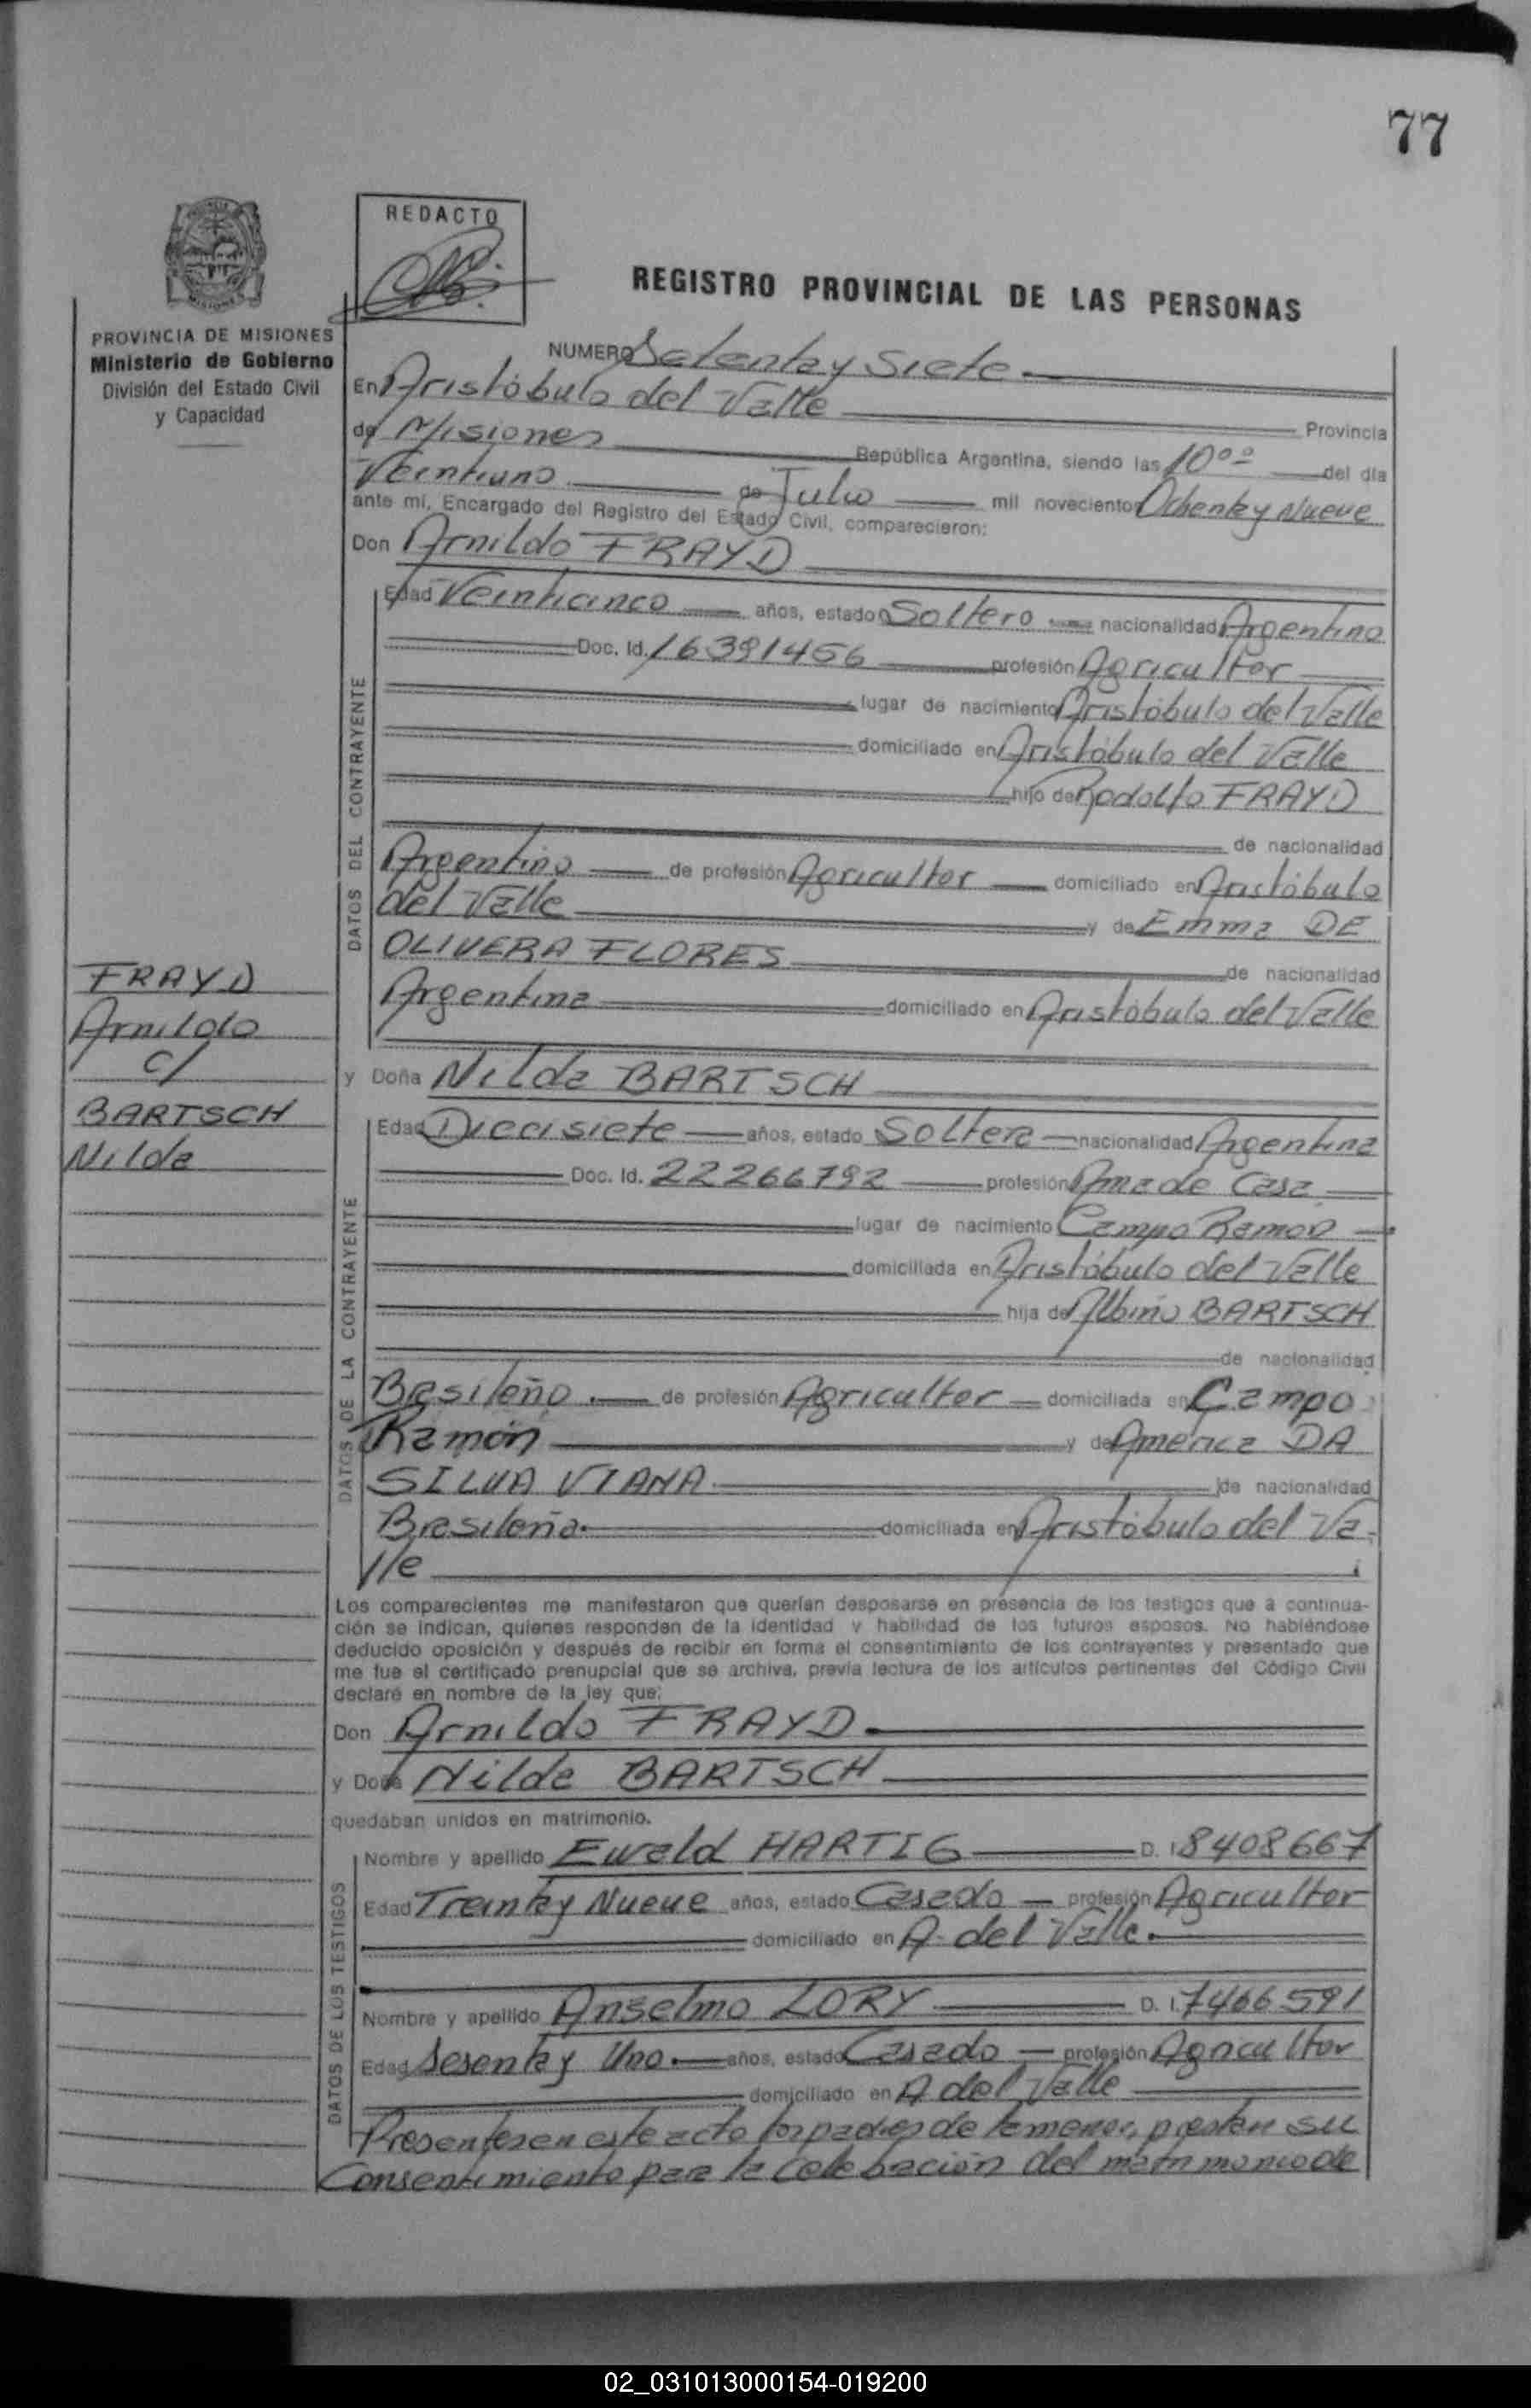 77
REDACTO
REGISTRO PROVINCIAL DE LAS PERSONAS
PROVINCIA DE MISIONES
Ministerio de Gobierno
División del Estado Civil
y Capacidad
NUMERO Setenta y Siete.
En Aristóbulo del Valle
Provincia
de Misiones República Argentina, siendo las 10°° del día
Veintiuno de Julio mil novecientos Ochenta y Nueve
ante mí, Encargado del Registro del Estado Civil, comparecieron:
Don Arnildo FRAYD
DATOS DEL CONTRAYENTE
Edad Veinticinco años, estado Soltero nacionalidad Argentino
Doc. Id. 16391456 profesión Agricultor
lugar de nacimiento Aristóbulo del Valle
domiciliado en Aristóbulo del Valle
hijo de Rodolfo FRAYD
de nacionalidad
Argentino de profesión Agricultor domiciliado en Aristóbulo
del Valle y de Emma DE
OLIVERA FLORES de nacionalidad
Argentina domiciliado en Aristóbulo del Valle
FRAYD
Arnildo
c/
BARTSCH
Nilda
y Doña Nilda BARTSCH
DATOS DE LA CONTRAYENTE
Edad Diecisiete años, estado Soltera nacionalidad Argentina
Doc. Id. 22266792 profesión Ama de Casa
lugar de nacimiento Campo Ramon
domiciliada en Aristóbulo del Valle
hija de Albino BARTSCH
de nacionalidad
Brasileño. de profesión Agricultor domiciliada en Campo
Ramón y de America DA
SILVA VIANA. de nacionalidad
Brasileña. domiciliada en Aristóbulo del Va-
lle
Los comparecientes me manifestaron que querían desposarse en presencia de los testigos que a continua-
ción se indican, quienes responden de la identidad y habilidad de los futuros esposos. No habiéndose
deducido oposición y después de recibir en forma el consentimiento de los contrayentes y presentado que
me fue el certificado prenupcial que se archiva, previa lectura de los artículos pertinentes del Código Civil
declaré en nombre de la ley que:
Don Arnildo FRAYD.
y Doña Nilda BARTSCH
quedaban unidos en matrimonio.
DATOS DE LOS TESTIGOS
Nombre y apellido Ewald HARTIG D. I. 8408667
Edad Treinta y Nueve años, estado Casado profesión Agricultor
domiciliado en A. del Valle.
Nombre y apellido Anselmo LORY D. I. 7466591
Edad Sesenta y Uno. años, estado Casado profesión Agricultor
domiciliado en A del Valle
Presentes en este acto los padres de la menor, prestan su
Consentimiento para la celebración del matrimonio de
02_031013000154-019200